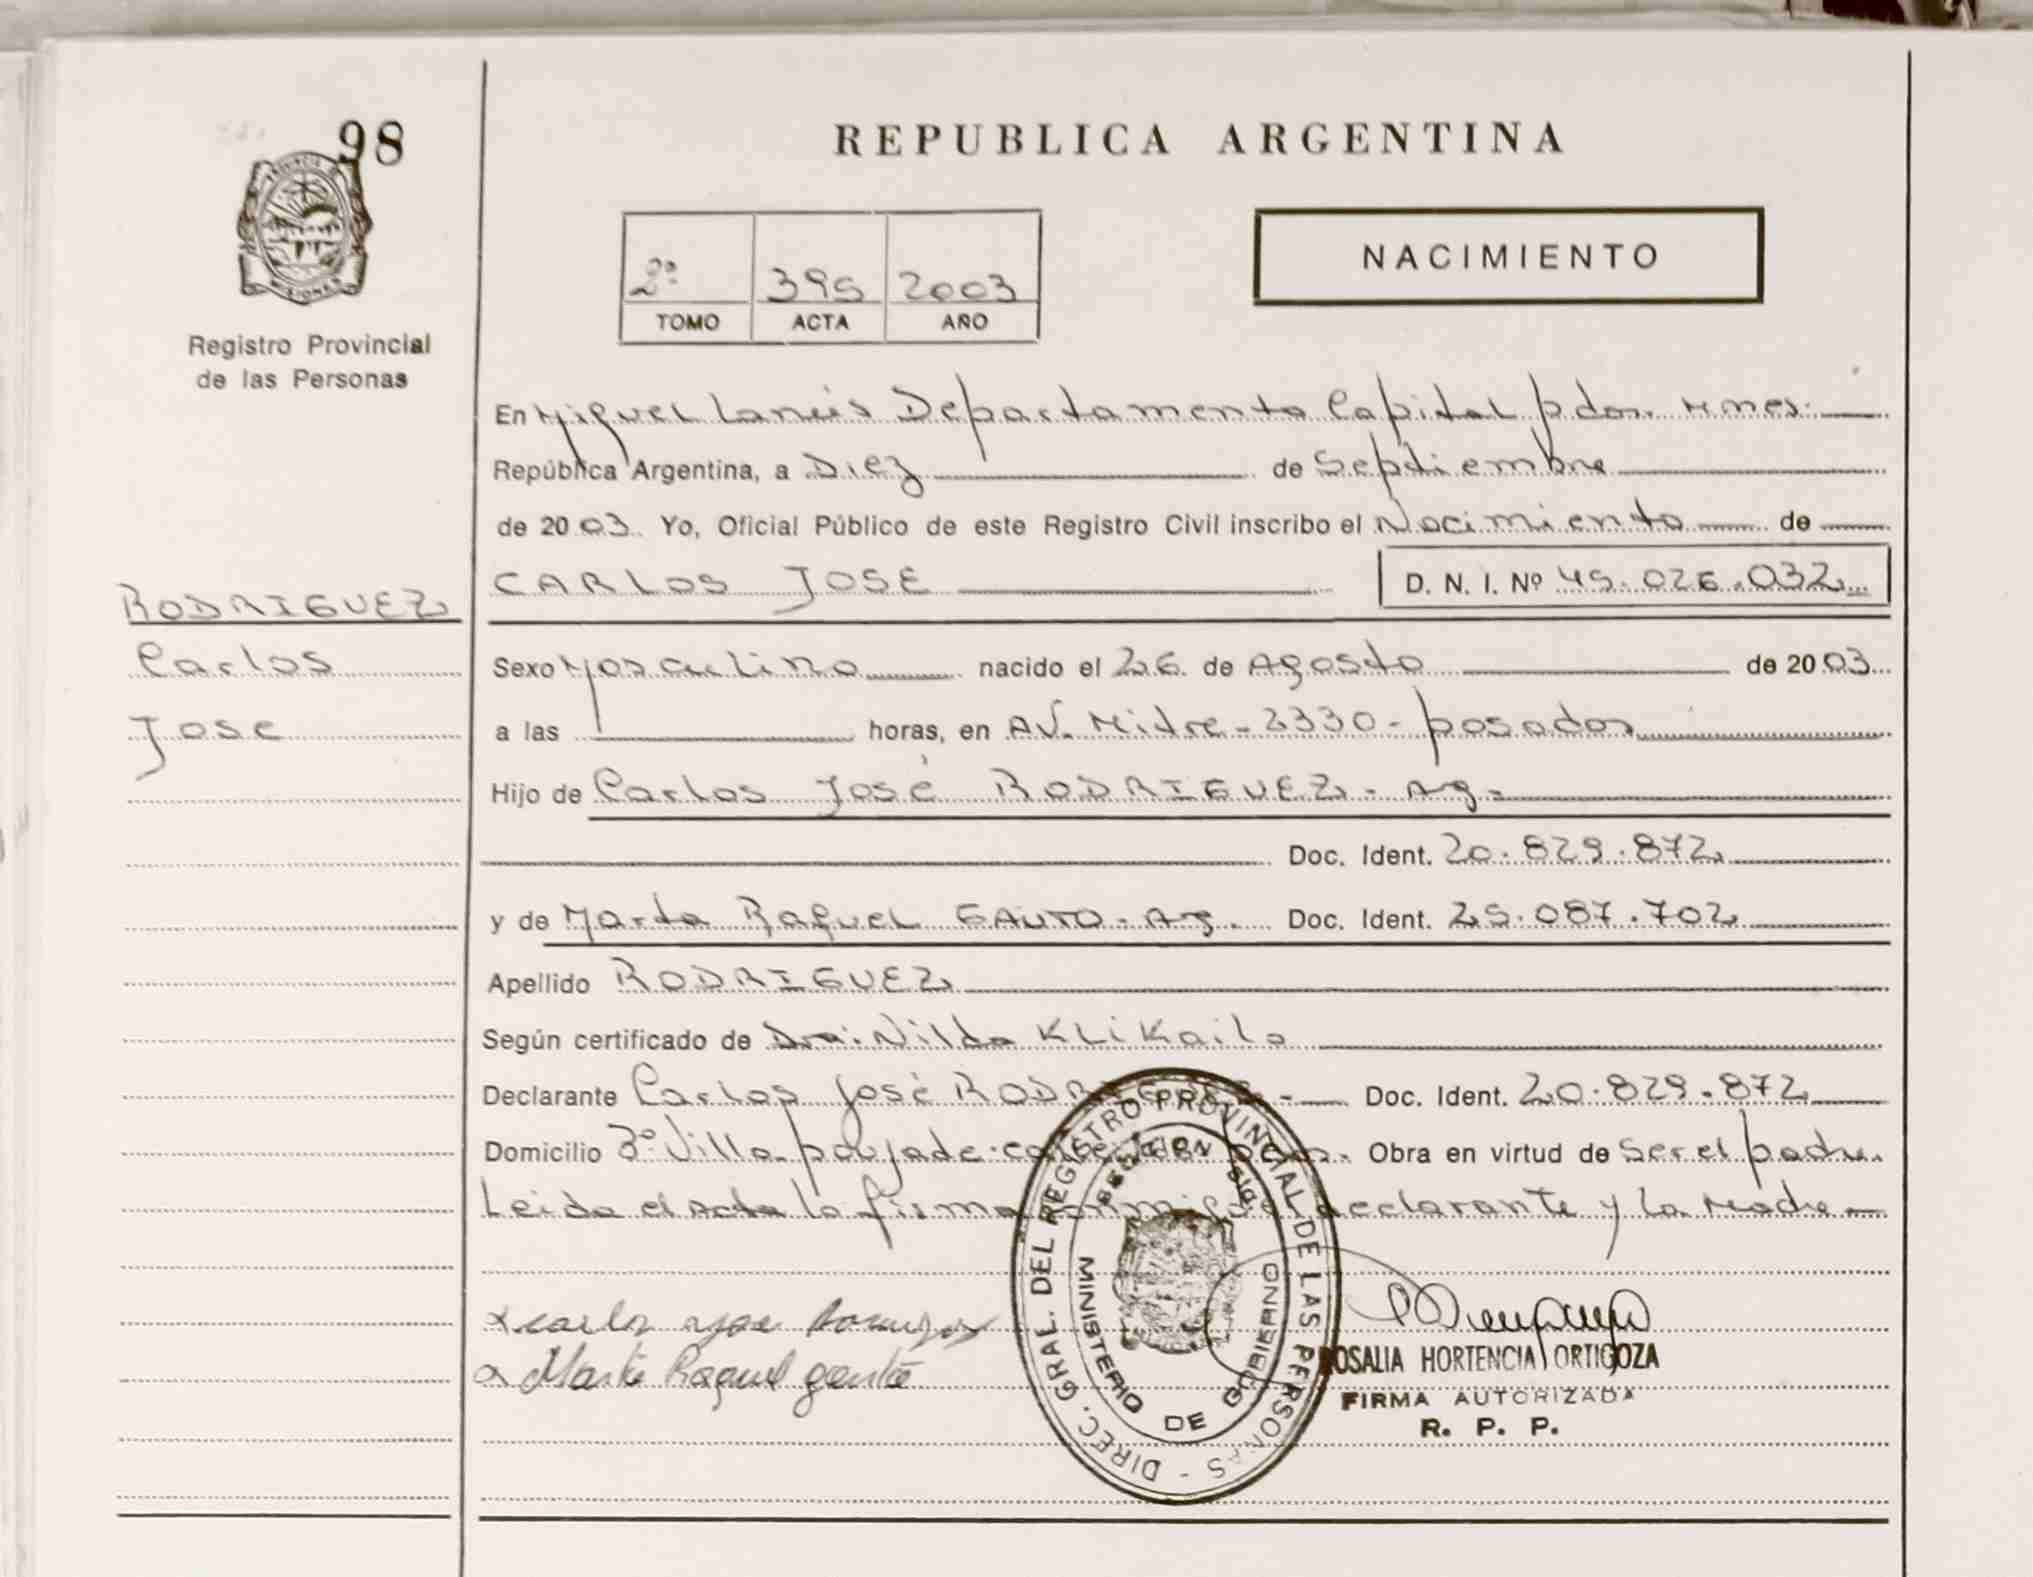 98
PROVINCIA
MISIONES
Registro Provincial
de las Personas
RODRIGUEZ
Carlos
Jose
REPUBLICA ARGENTINA
2º 395 2003
TOMO ACTA AÑO
NACIMIENTO
En Miguel Lanús Departamento Capital pdas. Mnes.
República Argentina, a Diez de Septiembre
de 2003. Yo, Oficial Público de este Registro Civil inscribo el Nacimiento de
CARLOS JOSE D. N. I. Nº 45.026.032
Sexo Masculino nacido el 26 de Agosto de 2003
a las horas, en AV. Mitre - 2330 - posadas
Hijo de Carlos José RODRIGUEZ - Ag -
Doc. Ident. 20.829.872
y de Marta Raquel GAUTO - Ag. Doc. Ident. 25.087.702
Apellido RODRIGUEZ
Según certificado de Dra. Nilda KLIKailo
Declarante Carlos José RODRIGUEZ - Doc. Ident. 20.829.872
Domicilio 3º Villa poujade Obra en virtud de ser el padre.
Leida el Acta la firma conmigo el declarante y la Madre
Marta Raquel gauto
DIREC. GRAL. DEL REGISTRO PROVINCIAL DE LAS PERSONAS -
MINISTERIO DE GOBIERNO
ROSALIA HORTENCIA ORTIGOZA
FIRMA AUTORIZADA
R. P. P.